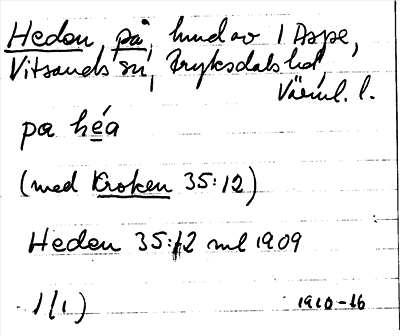 Heden, på, hmd av 1 Aspe,
Vitsands sn, Fryksdals hd,
Värml. l.
pa héa
(med Kroken 35:12)
Heden 35:12 ml 1909
1(1) 1910-16